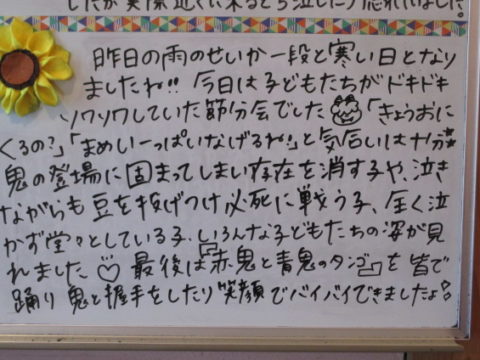 したが実際近くに来ると号泣したり恐れていました。
昨日の雨のせいか一段と寒い日となり
ましたね!! 今日は子どもたちがドキドキ
ソワソワしていた節分会でした「きょうおに
くるの?」「まめいーっぱいなげるね!」と気合いは十分
鬼の登場に固まってしまい存在を消す子や、泣き
ながらも豆を投げつけ必死に戦う子、全く泣
かず堂々としている子、いろんな子どもたちの姿が見
れました♡ 最後は『赤鬼と青鬼のタンゴ』を皆で
踊り鬼と握手をしたり笑顔でバイバイできましたよ